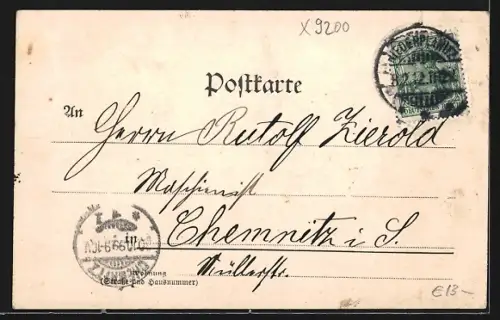 X 9200
Postkarte
An
Herrn Rudolf Zierold
Maschienist
in
Chemnitz i. S.
Müllerstr.
Wohnung
(Straße und Hausnummer)
€13-